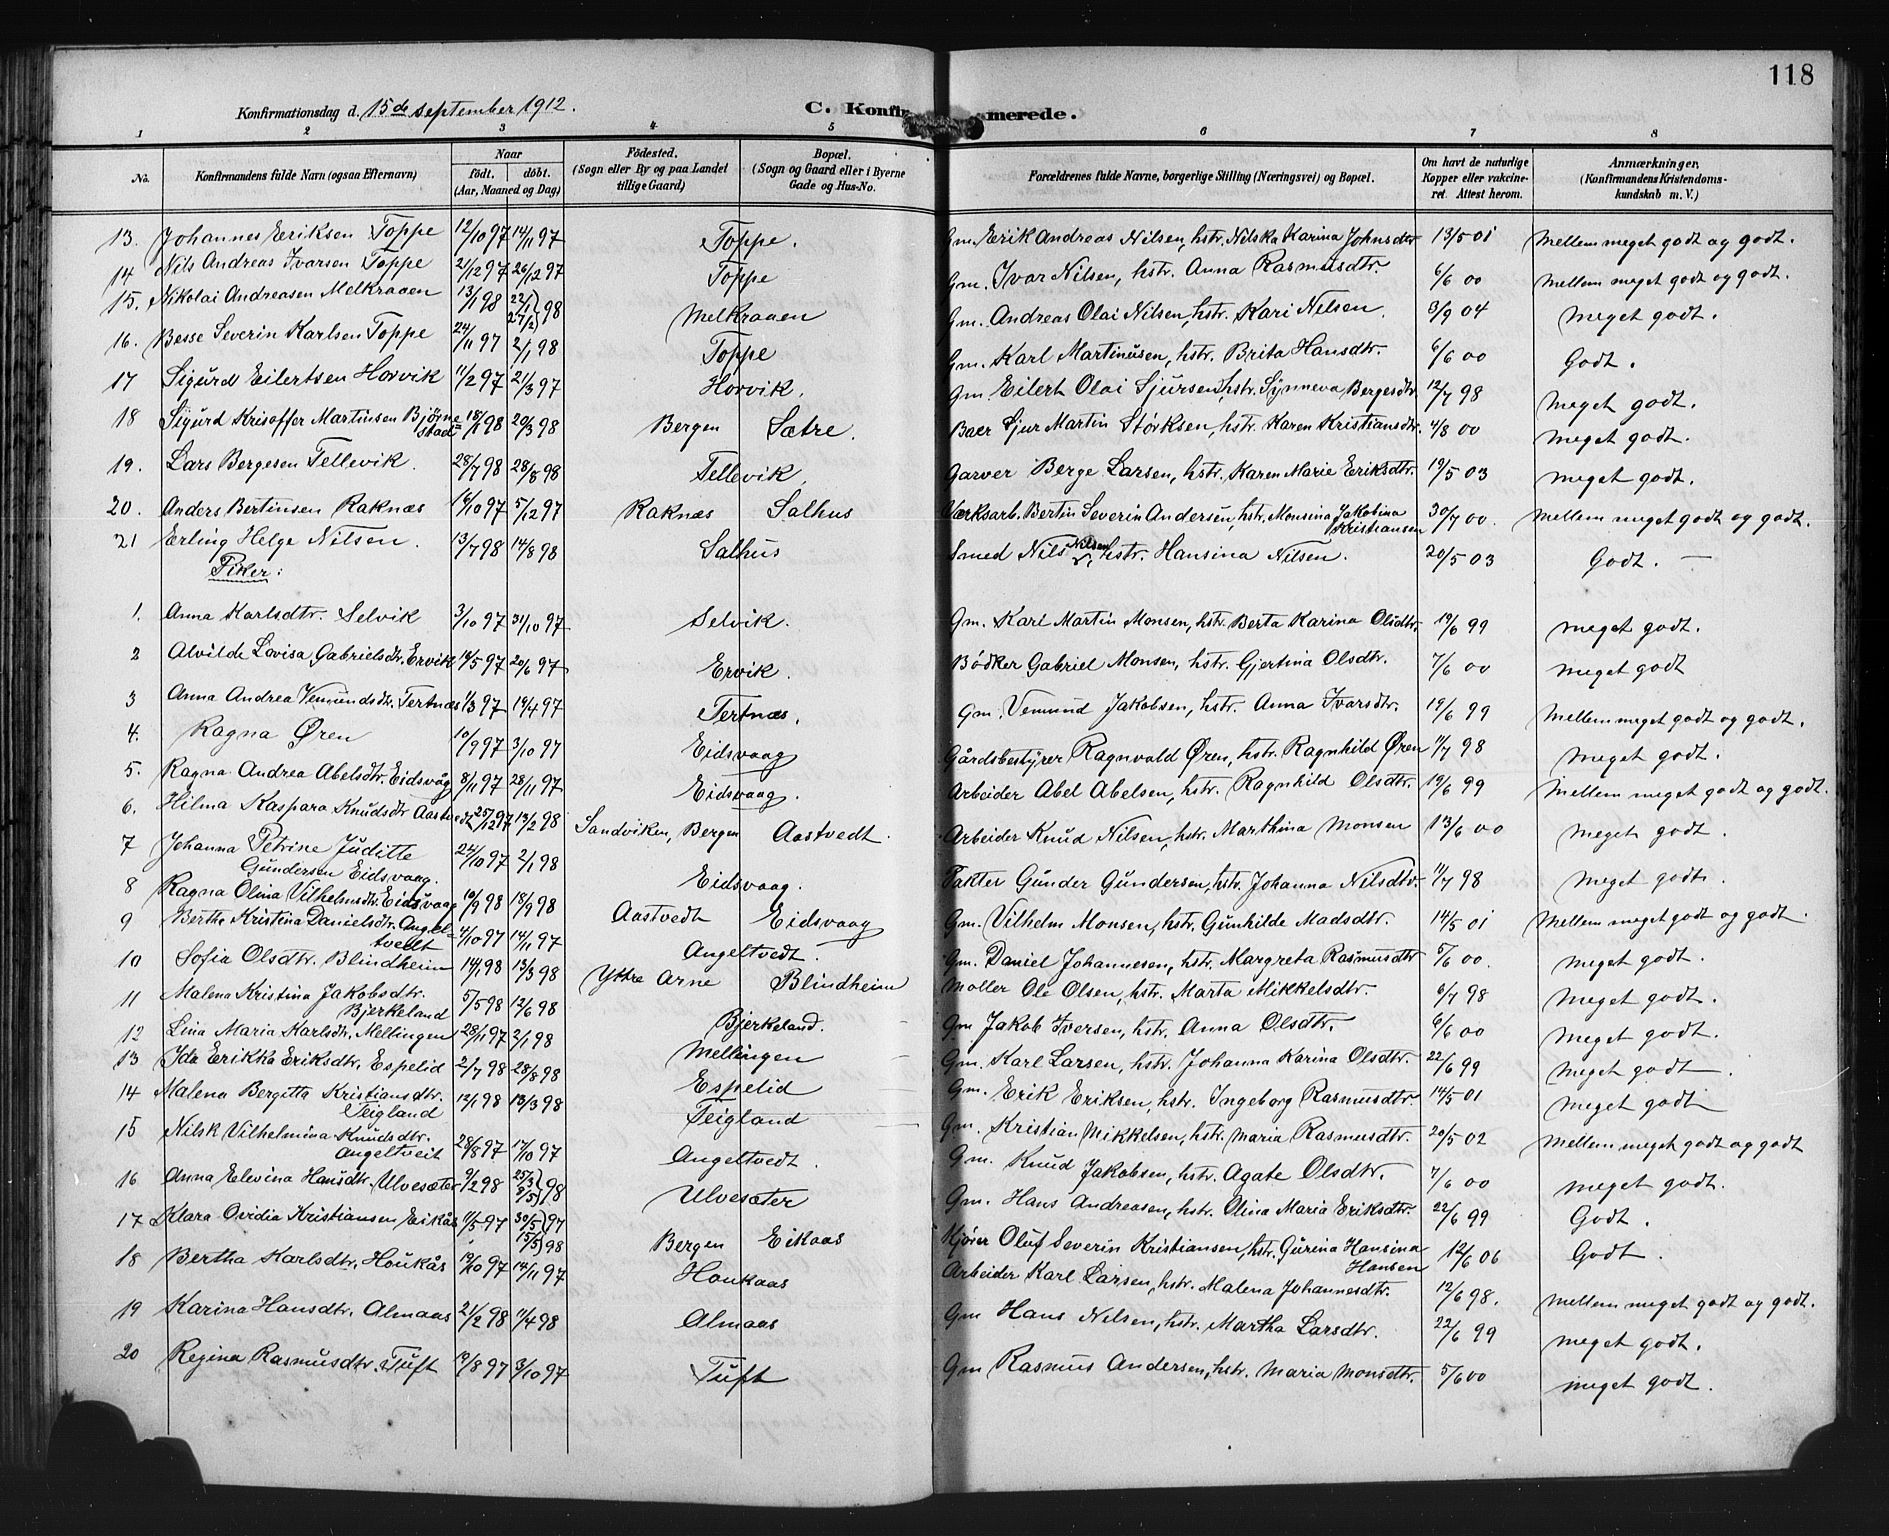 118
Konfirmationsdag d. 15de september 1912. C. Konfir merede.
1 2 3 4 5 6 7 8
No. Konfirmandens fulde Navn (ogsaa Efternavn) Naar født. døbt. (Aar, Maaned og Dag) Fødested. (Sogn eller By og paa Landet tillige Gaard) Bopæl. (Sogn og Gaard eller i Byerne Gade og Hus-No. Forældrenes fulde Navne, borgerlige Stilling (Næringsvei) og Bopæl. Om havt de naturlige Kopper eller vakcineret. Attest herom. Anmærkninger. (Konfirmandens Kristendomskundskab m. V.)
13. Johannes Eriksen Toppe 12/10 97 14/11 97 Toppe. Gm. Erik Andreas Nilsen, hstr. Nilska Karina Johnsdtr 13/5 01 Mellem meget godt og godt.
14 Nils Andreas Ivarsen Toppe 21/12 97 26/12 97 Toppe Gm. Ivar Nilsen, hstr. Anna Rasmusdtr. 6/6 00 Mellem meget godt og godt.
15. Nikolai Andreasen Melkraaen 13/1 98 22/1 27/2 98 Melkraaen Gm. Andreas Olai Nilsen, hstr. Kari Nilsen. 3/9 04 Meget godt.
16. Besse Severin Karlsen Toppe 24/11 97 2/1 98 Toppe Gm. Karl Martinusen, hstr. Brita Hansdtr. 6/6 00 Godt.
17 Sigurd Eilertsen Horvik 11/2 97 21/3 97 Horvik. Gm Eilert Olai Sjursen, hstr. Synneva Bergesdtr. 12/7 98 Meget godt.
18 Sigurd Krisoffer Martinsen Bjørnestad 18/1 98 20/3 98 Bergen Sætre. Baer Sjur Martin Størksen, hstr. Karen Kristiansdtr. 4/8 00 Meget godt.
19. Lars Bergesen Tellevik. 28/7 98 28/8 98 Tellevik. Garver Berge Larsen, hstr. Karen Marie Eriksdtr. 19/5 03 Meget godt.
20. Anders Bertinsen Raknæs 16/10 97 5/12 97 Raknæs Salhus Værksarb. Bertin Severin Andersen, hstr. Monsina Jakobina Kristiansen 30/7 00. Mellem meget godt og godt.
21 Erling Helge Nilsen. 13/7 98 14/8 98 Salhus Smed Nils Nilsen, hstr. Hansina Nilsen. 20/5 03 Godt. –
Piker:
1. Anna Karlsdtr. Selvik 3/10 97 31/10 97 Selvik. Gm. Karl Martin Monsen, hstr. Berta Karina Olsdtr. 19/6 99 Meget godt.
2 Alvilde Lovisa Gabrielsdtr. Ervik 16/5 97 20/6 97 Ervik. Bødker Gabriel Monsen, hstr. Gjertina Olsdtr. 7/6 00 Meget godt
3 Anna Andrea Vemundsdtr. Tertnæs 1/3 97 19/4 97 Tertnæs. Gm. Vemund Jakobsen, hstr. Anna Ivarsdtr. 19/6 99 Mellem meget godt og godt.
4. Ragna Øren 10/9 97 3/10 97 Eidsvaag Gårdsbestyrer Ragnvald Øren, hstr. Ragnhild Øren 11/7 98 Meget godt.
5. Ragna Andrea Abelsdtr. Eidsvåg 8/11 97 28/11 97 Eidsvaag. Arbeider Abel Abelsen, hstr. Ragnhild Olsdtr. 19/6 99 Mellem meget godt og godt.
6. Hilma Kaspara Knudsdtr Aastvedt 25/12 97 13/2 98 Sandviken, Bergen Aastvedt. Arbeider Knud Nilsen, hstr. Marthina Monsen 13/6 00 Meget godt.
7 Johanna Petrine Juditte Gundersen Eidsvaag. 24/10 97 2/1 98 Eidsvaag. Faktor Gunder Gundersen, hstr. Johanna Nilsdtr. 11/7 98 Meget godt.
8 Ragna Olina Vilhelmsdtr. Eidsvaag 10/9 98 18/9 98 Aastvedt Eidsvaag Gm. Vilhelm Monsen, hstr. Gunhilde Madsdtr. 14/5 01 Mellem meget godt og godt.
9 Bertha Kristina Danielsdtr. Angeltvedt 4/10 97 14/11 97 Angeltvedt. Gm. Daniel Johannesen, hstr. Margreta Rasmusdtr 5/6 00. Meget godt.
10 Sofia Olsdtr. Blindheim 14/1 98 13/3 98 Ytre Arne Blindheim Møller Ole Olsen, hstr. Marta Mikkelsdtr. 6/7 98 Meget godt.
11 Malena Kristina Jakobsdtr. Bjerkeland 5/5 98 12/6 98 Bjerkeland. Gm Jakob Iversen, hstr. Anna Olsdtr. 6/6 00 Meget godt.
12 Lina Maria Karlsdtr. Mellingen 28/11 97 2/1 98 Mellingen Gm. Karl Larsen, hstr. Johanna Karina Olsdtr. 22/6 99 Meget godt.
13 Ida Erikka Eriksdtr. Espelid 2/7 98 28/8 98 Espelid Gm. Erik Eriksen, hstr. Ingeborg Rasmusdtr. 14/5 01 Meget godt
14 Malena Bergitta Kristiansdtr. Teigland 12/1 98 13/3 98 Teigland Gm. Kristian Mikkelsen, hstr. Maria Rasmusdtr. 20/5 02 Mellem meget godt og godt
15 Nilsk Vilhelmina Knudsdtr. Angeltveit 28/8 97 17/10 97 Angeltvedt. Gm. Knud Jakobsen, hstr. Agate Olsdtr. 7/6 00 Meget godt.
16 Anna Elevina Hansdtr. Ulvesæter 9/2 98 25/3 9/5 98 Ulvesæter Gm. Hans Andreasen, hstr. Olina Maria Eriksdtr. 22/6 99 Godt.
17 Klara Ovidia Kristiansen Eikås 11/5 97 30/5 97 15/5 98 Bergen Eikaas Kjører Oluf Severin Kristiansen, hstr. Gurina Hansina Hansen 12/6 06 Godt.
18 Bertha Karlsdtr. Houkås 19/10 97 14/11 97 Houkaas Arbeider Karl Larsen, hstr. Malena Johannesdtr. 12/6 98. Mellem meget godt og godt.
19 Karina Hansdtr. Almaas 21/2 98 11/4 98 Almaas Gm Hans Nilsen, hstr. Martha Larsdtr. 22/6 99 Meget godt.
20 Regina Rasmusdtr. Tuft 19/8 97 3/10 97 Tuft Gm Rasmus Andersen, hstr. Maria Monsdtr. 5/6 00 Meget godt.